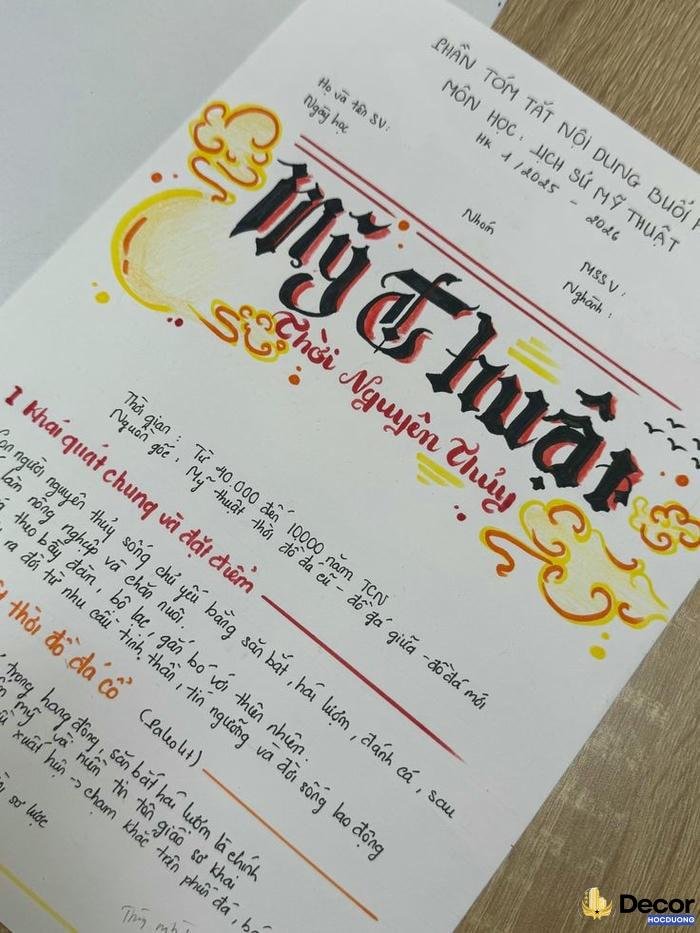 PHẦN TÓM TẮT NỘI DUNG BUỔI
MÔN HỌC: LỊCH SỬ MỸ THUẬT
HK 1/2025 - 2026
Họ và tên SV:
Ngày học
Nhóm
MSSV:
Nghành:
Mỹ Thuật
Thời Nguyên Thủy
Thời gian: Từ 40.000 đến 10000 năm TCN
Nguồn gốc: Mỹ thuật thời đồ đá cũ - đồ đá giữa - đồ đá mới
I Khái quát chung và đặt điểm
con người nguyên thủy sống chủ yếu bằng săn bắt, hái lượm, đánh cá, sau
làn nông nghiệp và chăn nuôi.
theo bầy đàn, bộ lạc, gắn bó với thiên nhiên.
ra đời từ nhu cầu tinh thần, tín ngưỡng và đời sống lao động
thời đồ đá cổ (Paleolit)
trong hang động, săn bắt hái lượm là chính
mỹ và niềm tin tôn giáo sơ khai
xuất hiện → chạm khắc trên phiến đá,
sơ lược
Decor
HOCDUONG